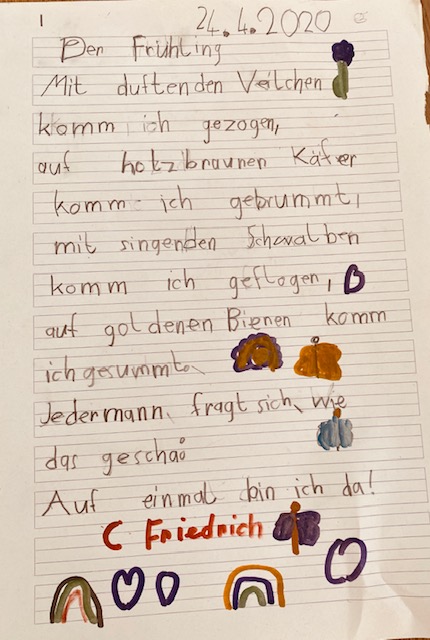 1
24.4.2020
Der Frühling
Mit duftenden Veilchen
komm ich gezogen,
auf holzbraunen Käfer
komm ich gebrummt,
mit singenden Schwalben
komm ich geflogen,
auf goldenen Bienen komm
ich gesummt.
Jedermann fragt sich, wie
das geschah
Auf einmal bin ich da!
C Friedrich